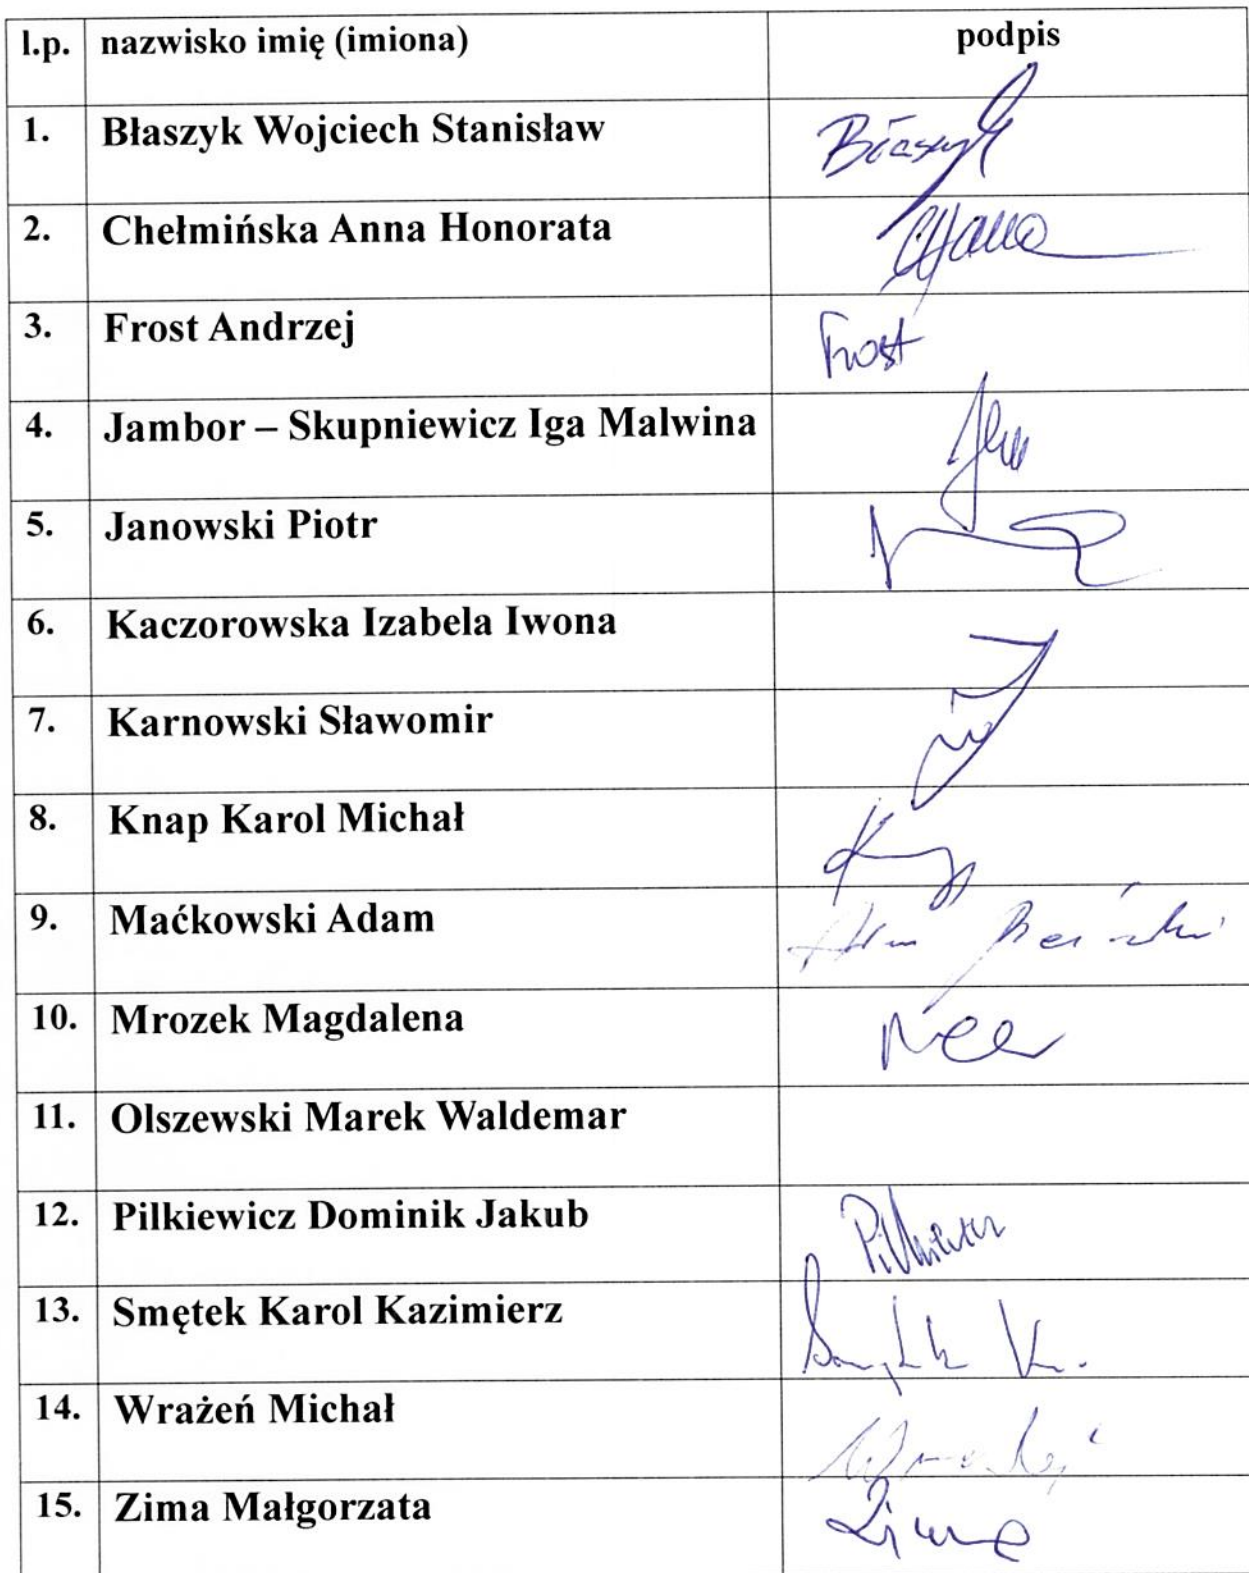 l.p. nazwisko imię (imiona) podpis
1. Błaszyk Wojciech Stanisław Błaszyk
2. Chełmińska Anna Honorata
3. Frost Andrzej Frost
4. Jambor – Skupniewicz Iga Malwina
5. Janowski Piotr
6. Kaczorowska Izabela Iwona
7. Karnowski Sławomir
8. Knap Karol Michał
9. Maćkowski Adam
10. Mrozek Magdalena
11. Olszewski Marek Waldemar
12. Pilkiewicz Dominik Jakub Pilkiewicz
13. Smętek Karol Kazimierz Smętek K.
14. Wrażeń Michał
15. Zima Małgorzata Zima